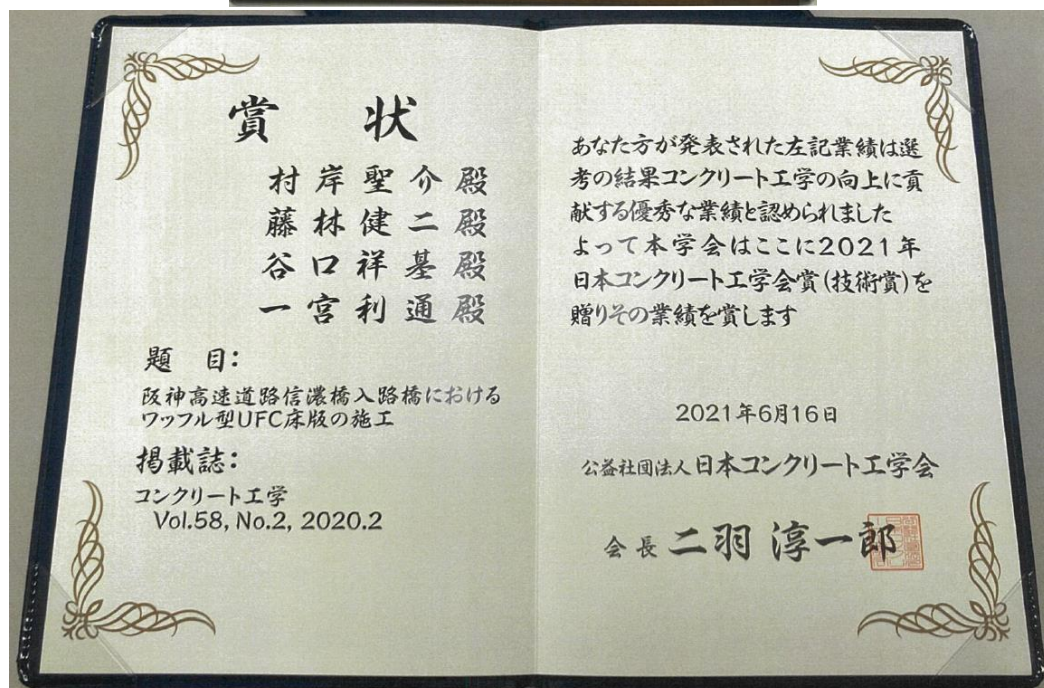 賞 状
村岸聖介殿
藤林健二殿
谷口祥基殿
一宮利通殿
題 目:
阪神高速道路信濃橋入路橋における
ワッフル型UFC床版の施工
掲載誌:
コンクリート工学
Vol.58, No.2, 2020.2
あなた方が発表された左記業績は選
考の結果コンクリート工学の向上に貢
献する優秀な業績と認められました
よって本学会はここに2021年
日本コンクリート工学会賞(技術賞)を
贈りその業績を賞します
2021年6月16日
公益社団法人日本コンクリート工学会
会長 二羽 淳一郎